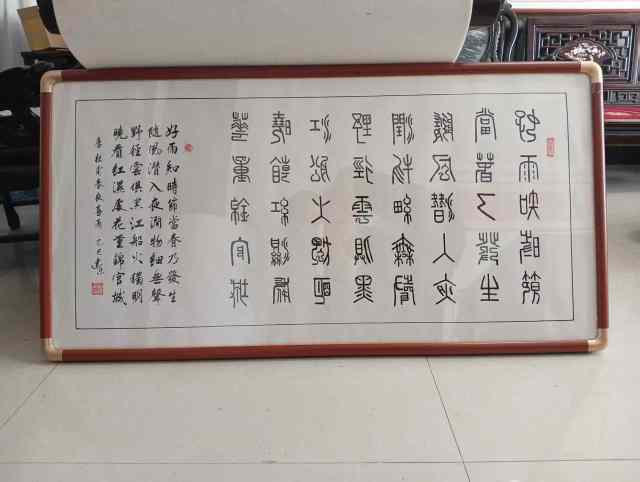 好雨知時節
當春乃發生
隨風潛入夜
潤物細無聲
野徑雲俱黑
江船火獨明
曉看紅濕處
花重錦官城
好雨知時節當春乃發生
随風潜入夜潤物細無聲
野径雲俱黑江船火獨明
曉看紅濕處花重錦官城
杜甫春夜喜雨乙巳